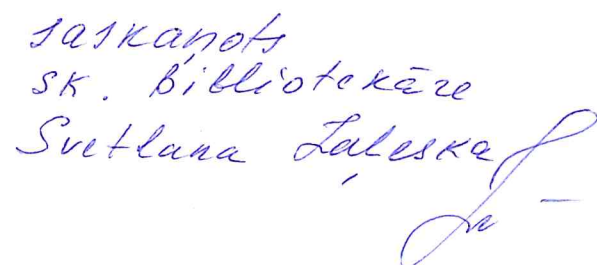 saskaņots
sk. bibliotekāre
Svetlana Zaļeska